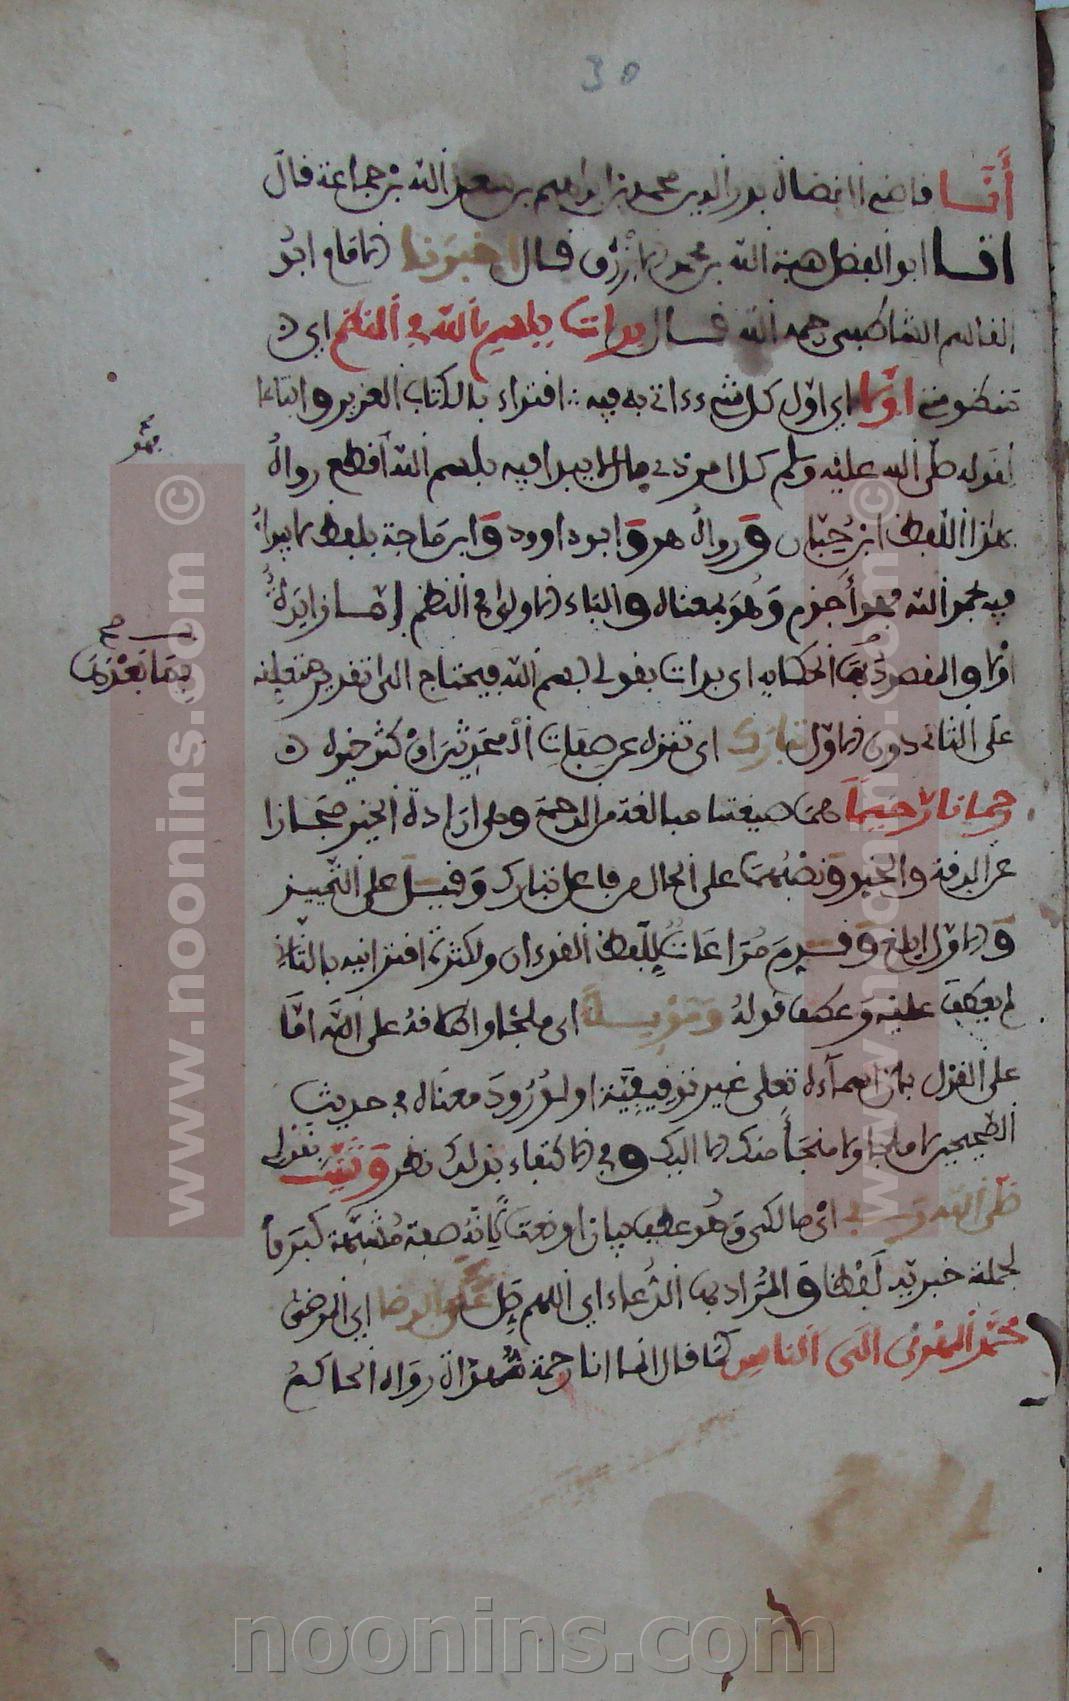 30
أنا قاضي القضاة بدر الدين محمد بن ابراهيم بن سعد الله بن جماعة قال
انا ابو الفضل هبة الله بن محمد الازرق قال اخبرنا الامام ابو
القاسم الشاطبي رحمه الله قال بدات ببسم الله في النظم اي
منظومي اولا اي اول كل شيء اتي به فيه اقتداء بالكتاب العزيز واتباعا
لقوله صلى الله عليه وسلم كل امر ذي بال لا يبدا فيه ببسم الله اقطع رواه
بهذا اللفظ ابن حبان ورواه هو وابو داوود وابن ماجة بلفظ لا يبدا
فيه بحمد الله فهو أجزم وهو بمعناه والباء الاولى في النظم إما زايدة
او لا والمقصود بها الحكاية اي بدات بقولي بسم الله فيحتاج الى تقدير متعلقه
على الثاني دون الاول تبارك اي تنزه عن صفات المحدثين او كثر خيره
رحمانا رحيما هما صيغتا مبالغة من الرحمة وهي ارادة الخير مجازا
عن الرقة والخير ونصبهما على الحال من فاعل تبارك وقيل على التمييز
والاول ابلغ وقدم مراعات للفظ القرءان ولكثرة اقترانيه بالثاني
لم يعطف عليه وعطف قوله وموئلا اي ملجئا واطلاقه على الله اما
على القول بان اسماءه تعلى غير توقيفية او لورود معناه في حديث
الصحيحين لا ملجا ولا منجأ منك الا اليك وفي الاكتفاء بذلك نظر وثنيت بقولي
صلى الله ربي اي مالكي وهو عطف بيان او نعت لانه صفة مشبهة كبر
لجملة خبرية لفظا والمراد بها الدعاء اي اللهم صل على الرضا اي المرضي
محمد المهدى الى الناس كما قال انما انا رحمة مهداة رواه الحاكم
فهو
صح
بما بعدها
www.noonins.com ©
www.noonins.com ©
noonins.com